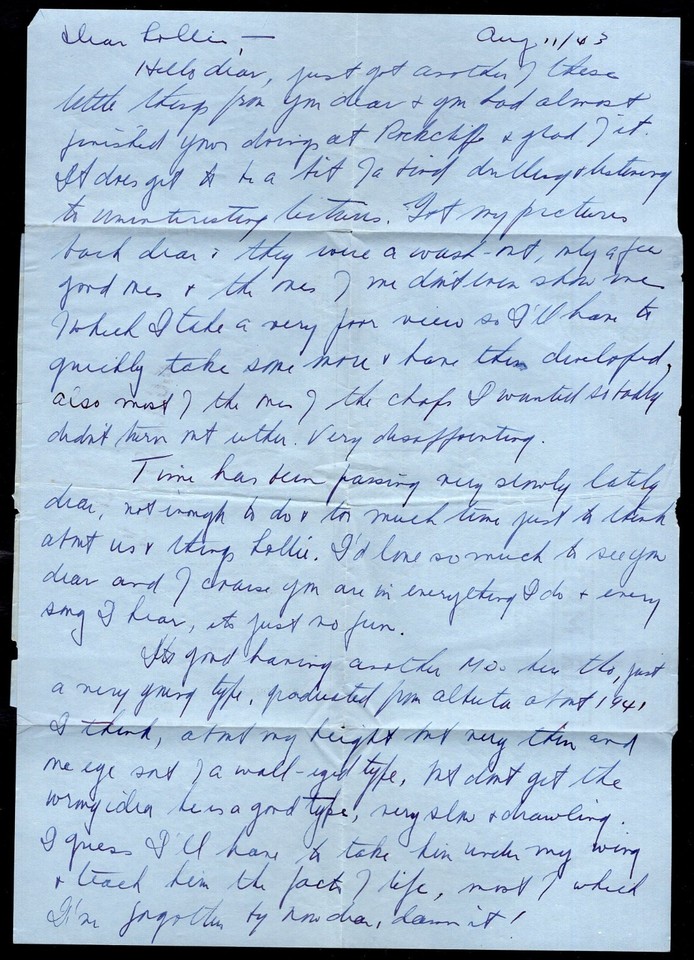 Dear Lollie, — Aug 11/43
Hello dear, just got another of these
little things from you dear & you had almost
finished your doings at Rockcliffe & glad of it.
It does get to be a bit of a bind drilling & listening
to uninteresting lectures. Got my pictures
back dear & they were a wash-out, only a few
good ones & the ones of me don't even show me
which I take a very poor view so I'll have to
quickly take some more & have them developed,
also most of the ones of the chaps I wanted so badly
didn't turn out either. Very disappointing.
Time has been passing very slowly lately
dear, not enough to do & too much time just to think
about us & things Lollie. I'd love so much to see you
dear and of course you are in everything I do & every
song I hear, its just no fun.
Its good having another M.O. here tho, just
a very young type, graduated from Alberta about 1941
I think, about my height but very thin and
one eye sort of a wall-eyed type, but don't get the
wrong idea he is a good type, very slow & drawling.
I guess I'll have to take him under my wing
& teach him the facts of life, most of which
I've forgotten by now dear, damn it!